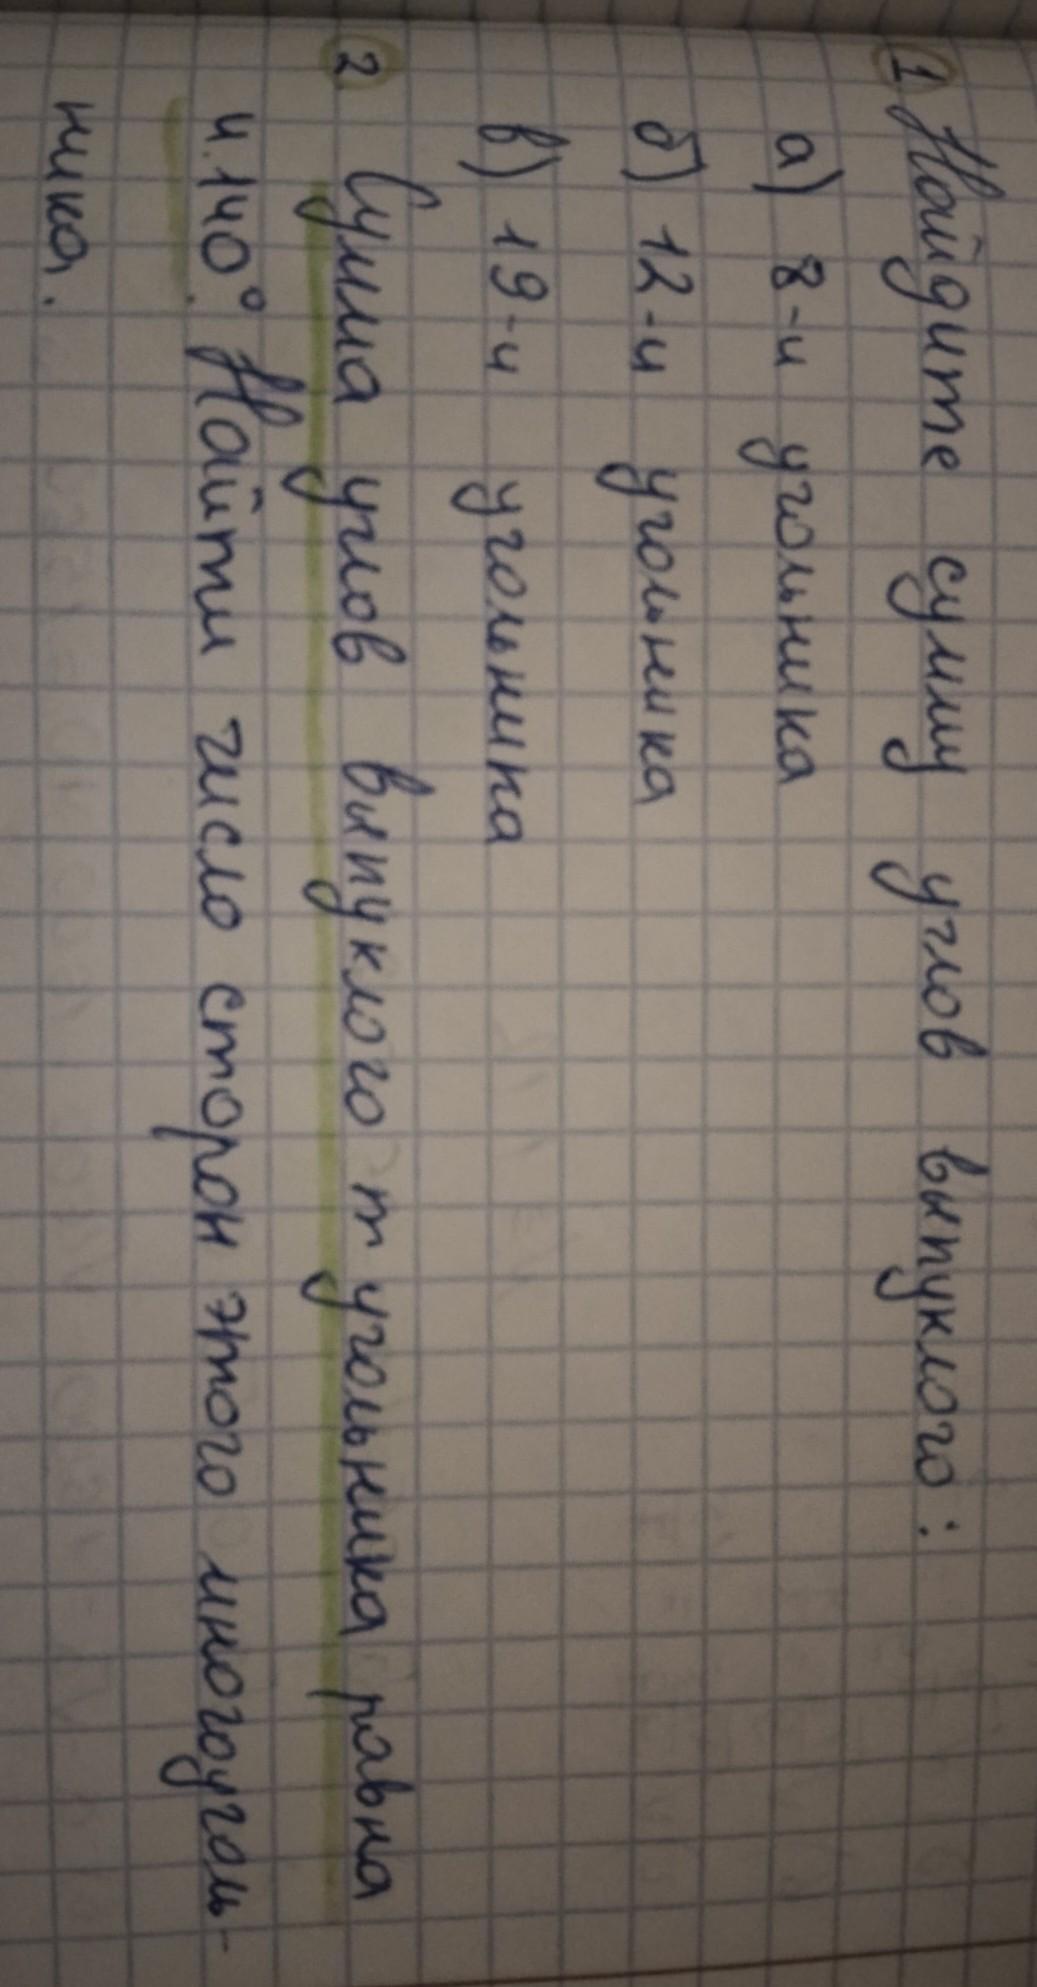 1 Найдите сумму углов выпуклого:
а) 8-и угольника
б) 12-и угольника
в) 19-и угольника
2 Сумма углов выпуклого n угольника равна
4.140°. Найти число сторон этого многоуголь-
ника.